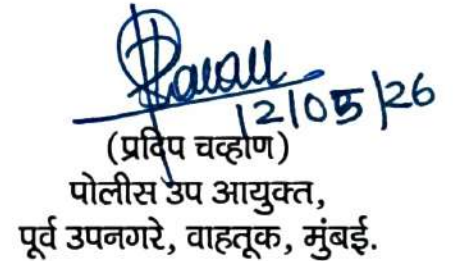 12/05/26
(प्रदिप चव्हाण)
पोलीस उप आयुक्त,
पूर्व उपनगरे, वाहतूक, मुंबई.